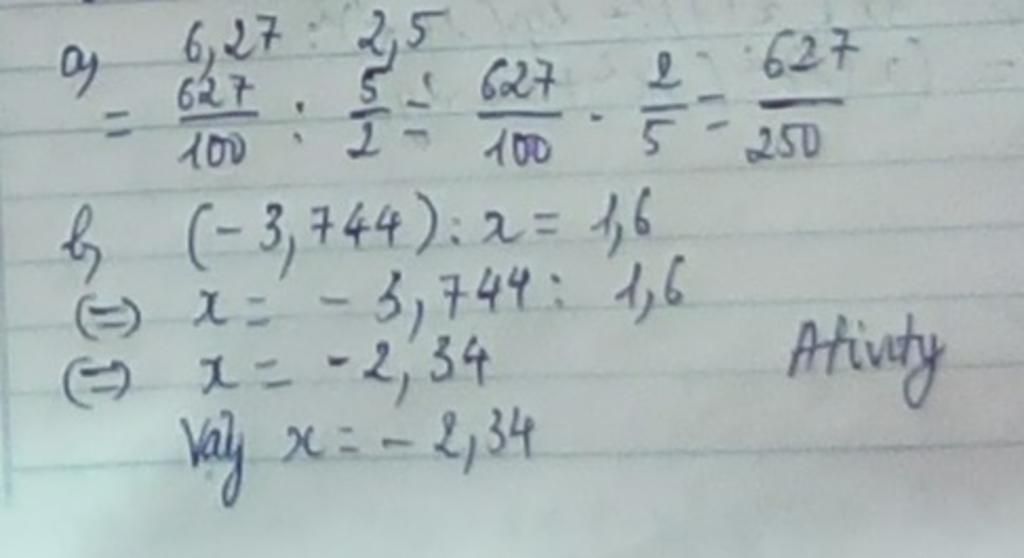 a, 6,27 : 2,5
= 627/100 : 5/2 = 627/100 . 2/5 = 627/250
b, (-3,744) : x = 1,6
(=) x = - 3,744 : 1,6
(=) x = -2,34
Vậy x = - 2,34
Ativity